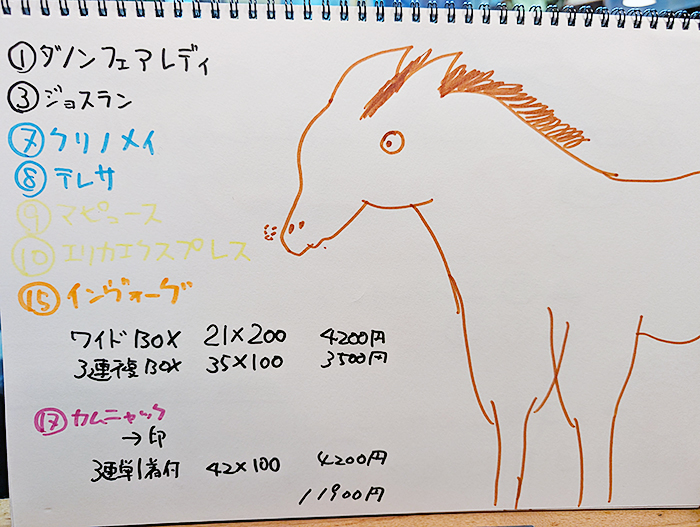 ①ダノンフェアレディ
③ジョスラン
⑦クリノメイ
⑧テレサ
⑨マピュース
⑩エリカエクスプレス
⑮インヴォーグ
ワイドBOX 21×200 4200円
3連複BOX 35×100 3500円
⑰カムニャック
→印
3連単1着付 42×100 4200円
11900円